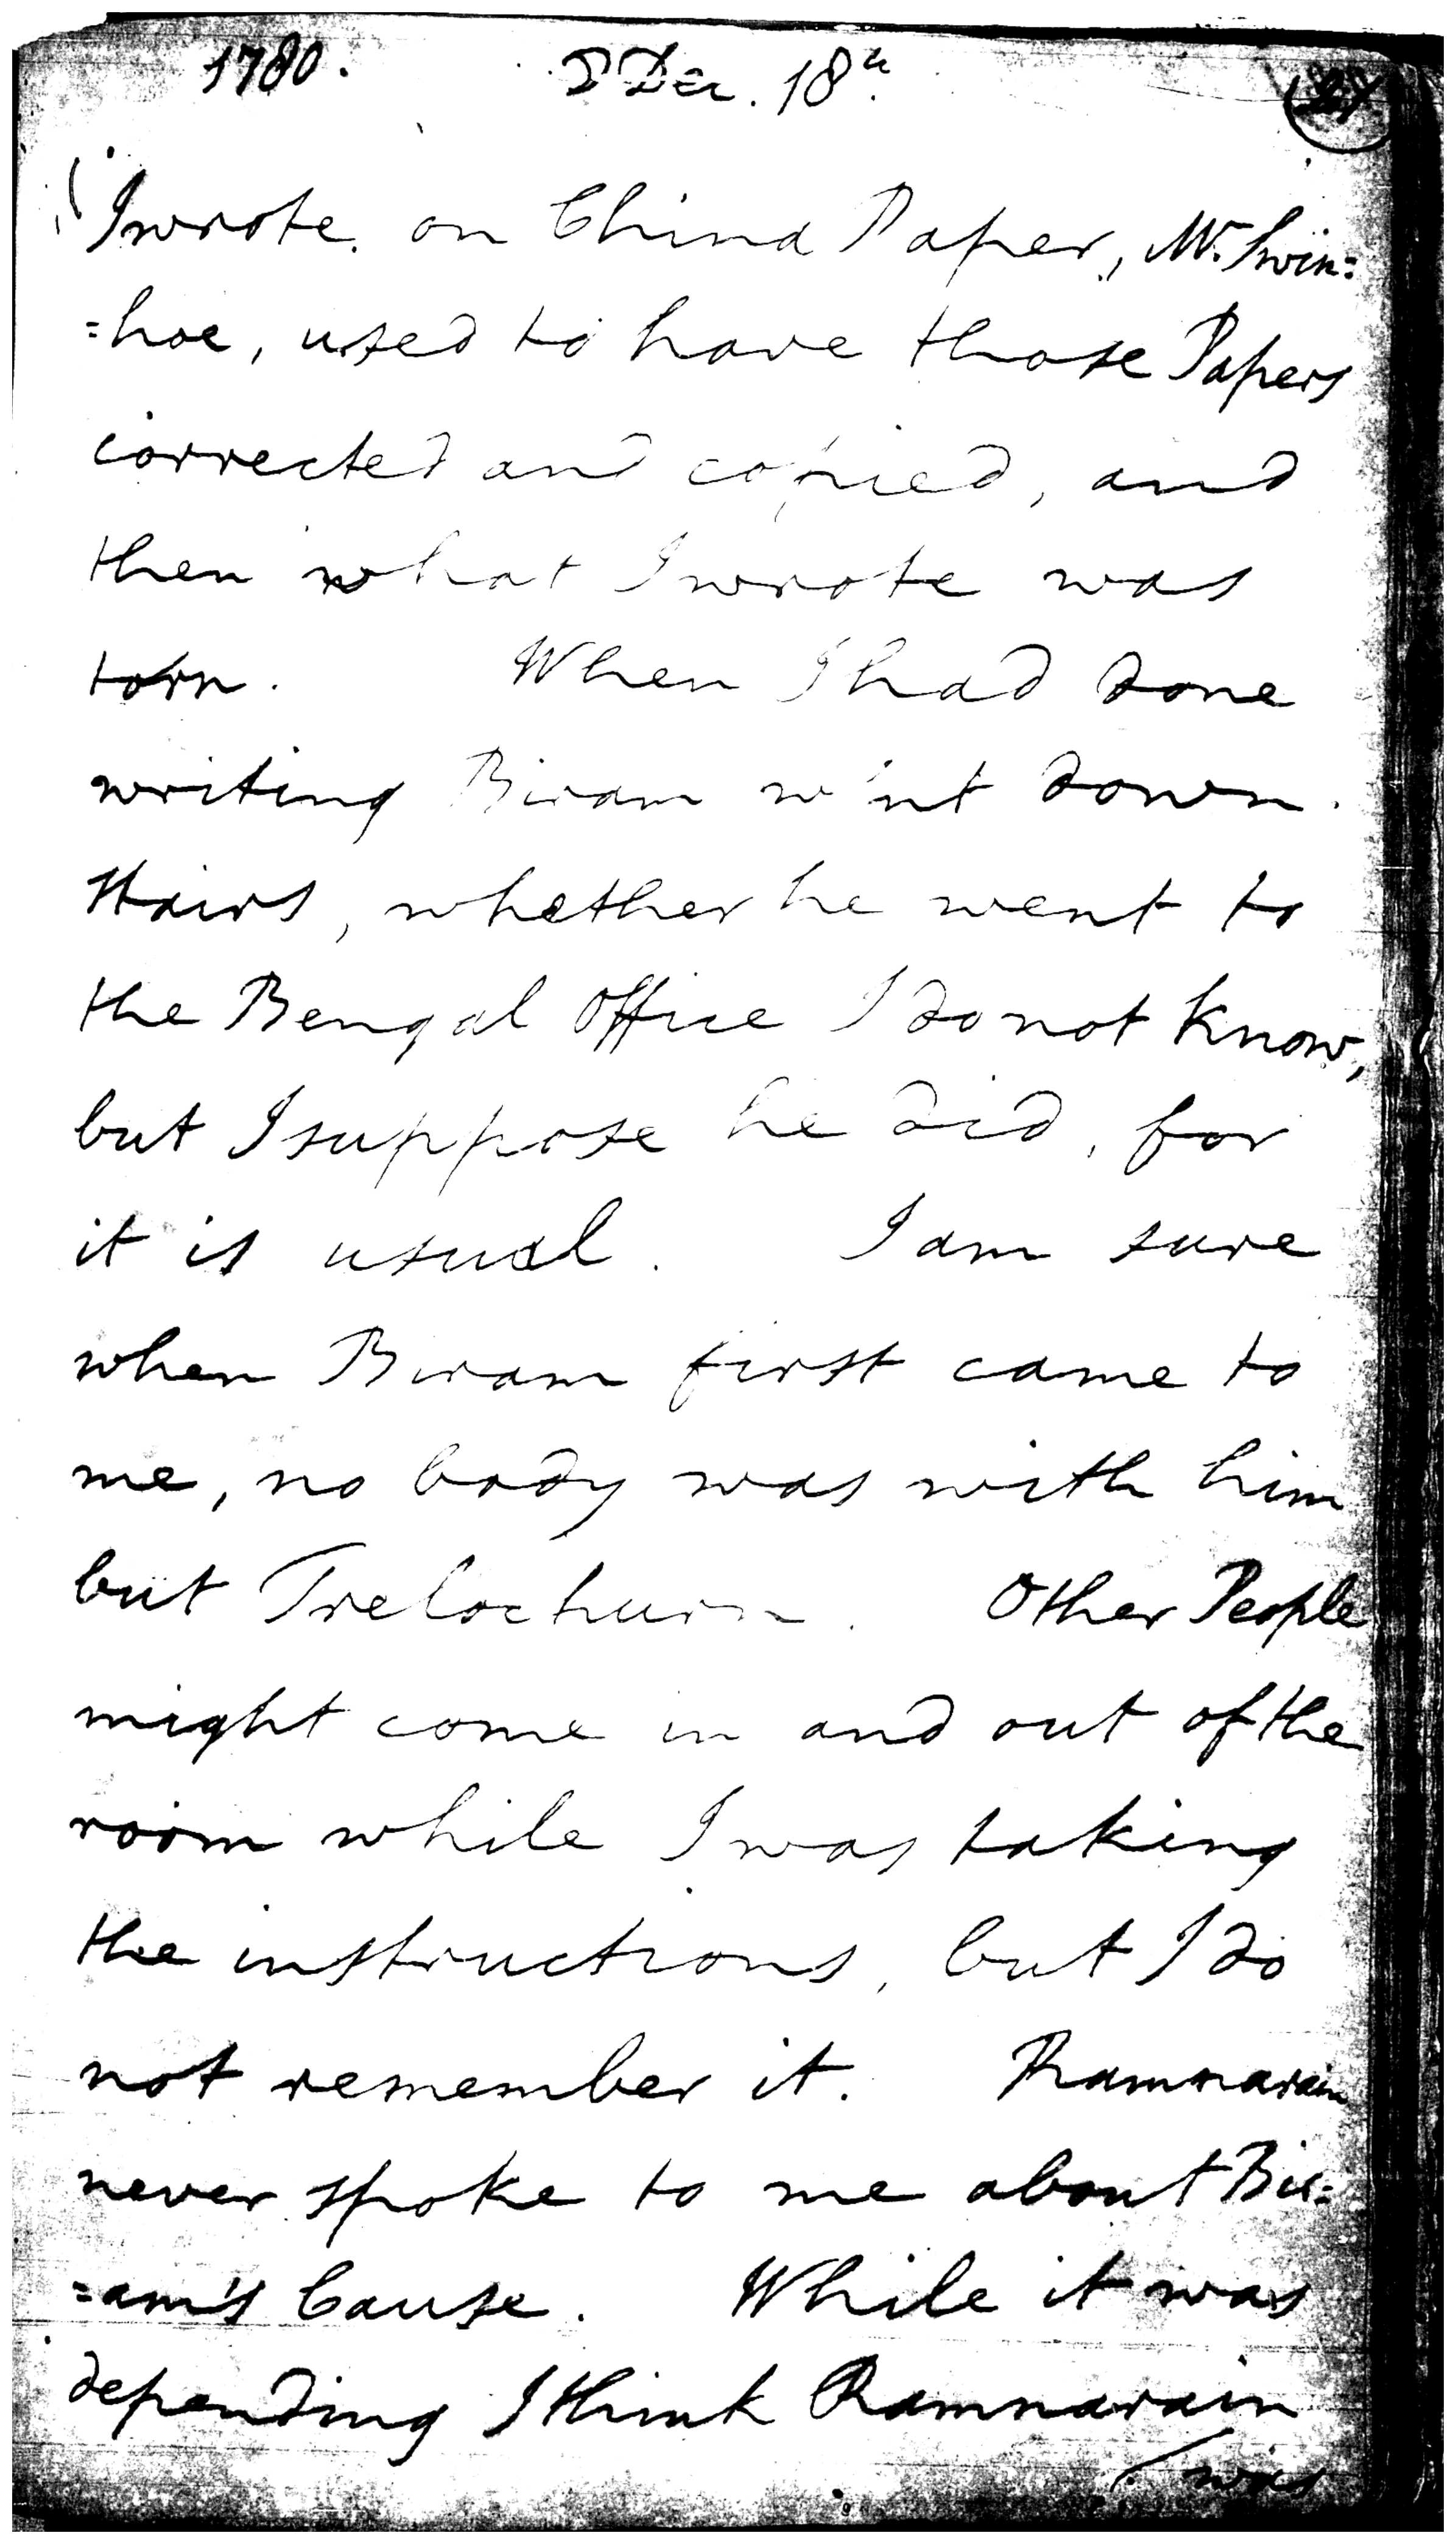 1780. Dec. 18th.
I wrote on China Paper, Mr. Swin=
=hoe, used to have those Papers
corrected and copied, and
then what I wrote was
torn. When I had done
writing Biram went down
Stairs, whether he went to
the Bengal Office I do not know,
but I suppose he did, for
it is usual. I am sure
when Biram first came to
me, no body was with him
but Trelochurn. Other People
might come in and out of the
room while I was taking
the instructions, but I do
not remember it. Ramnarain
never spoke to me about Bir=
=am's Cause. While it was
depending I think Ramnarain
was